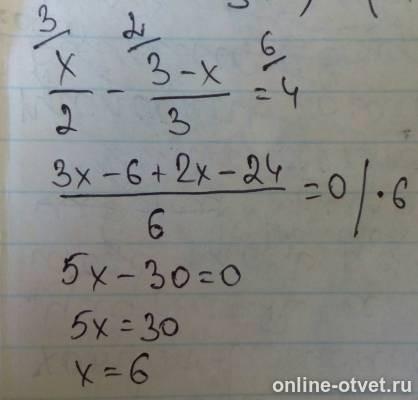 3/ 2/ 6/
x/2 - (3-x)/3 = 4
(3x-6+2x-24)/6 = 0 | · 6
5x-30=0
5x=30
x=6
online-otvet.ru